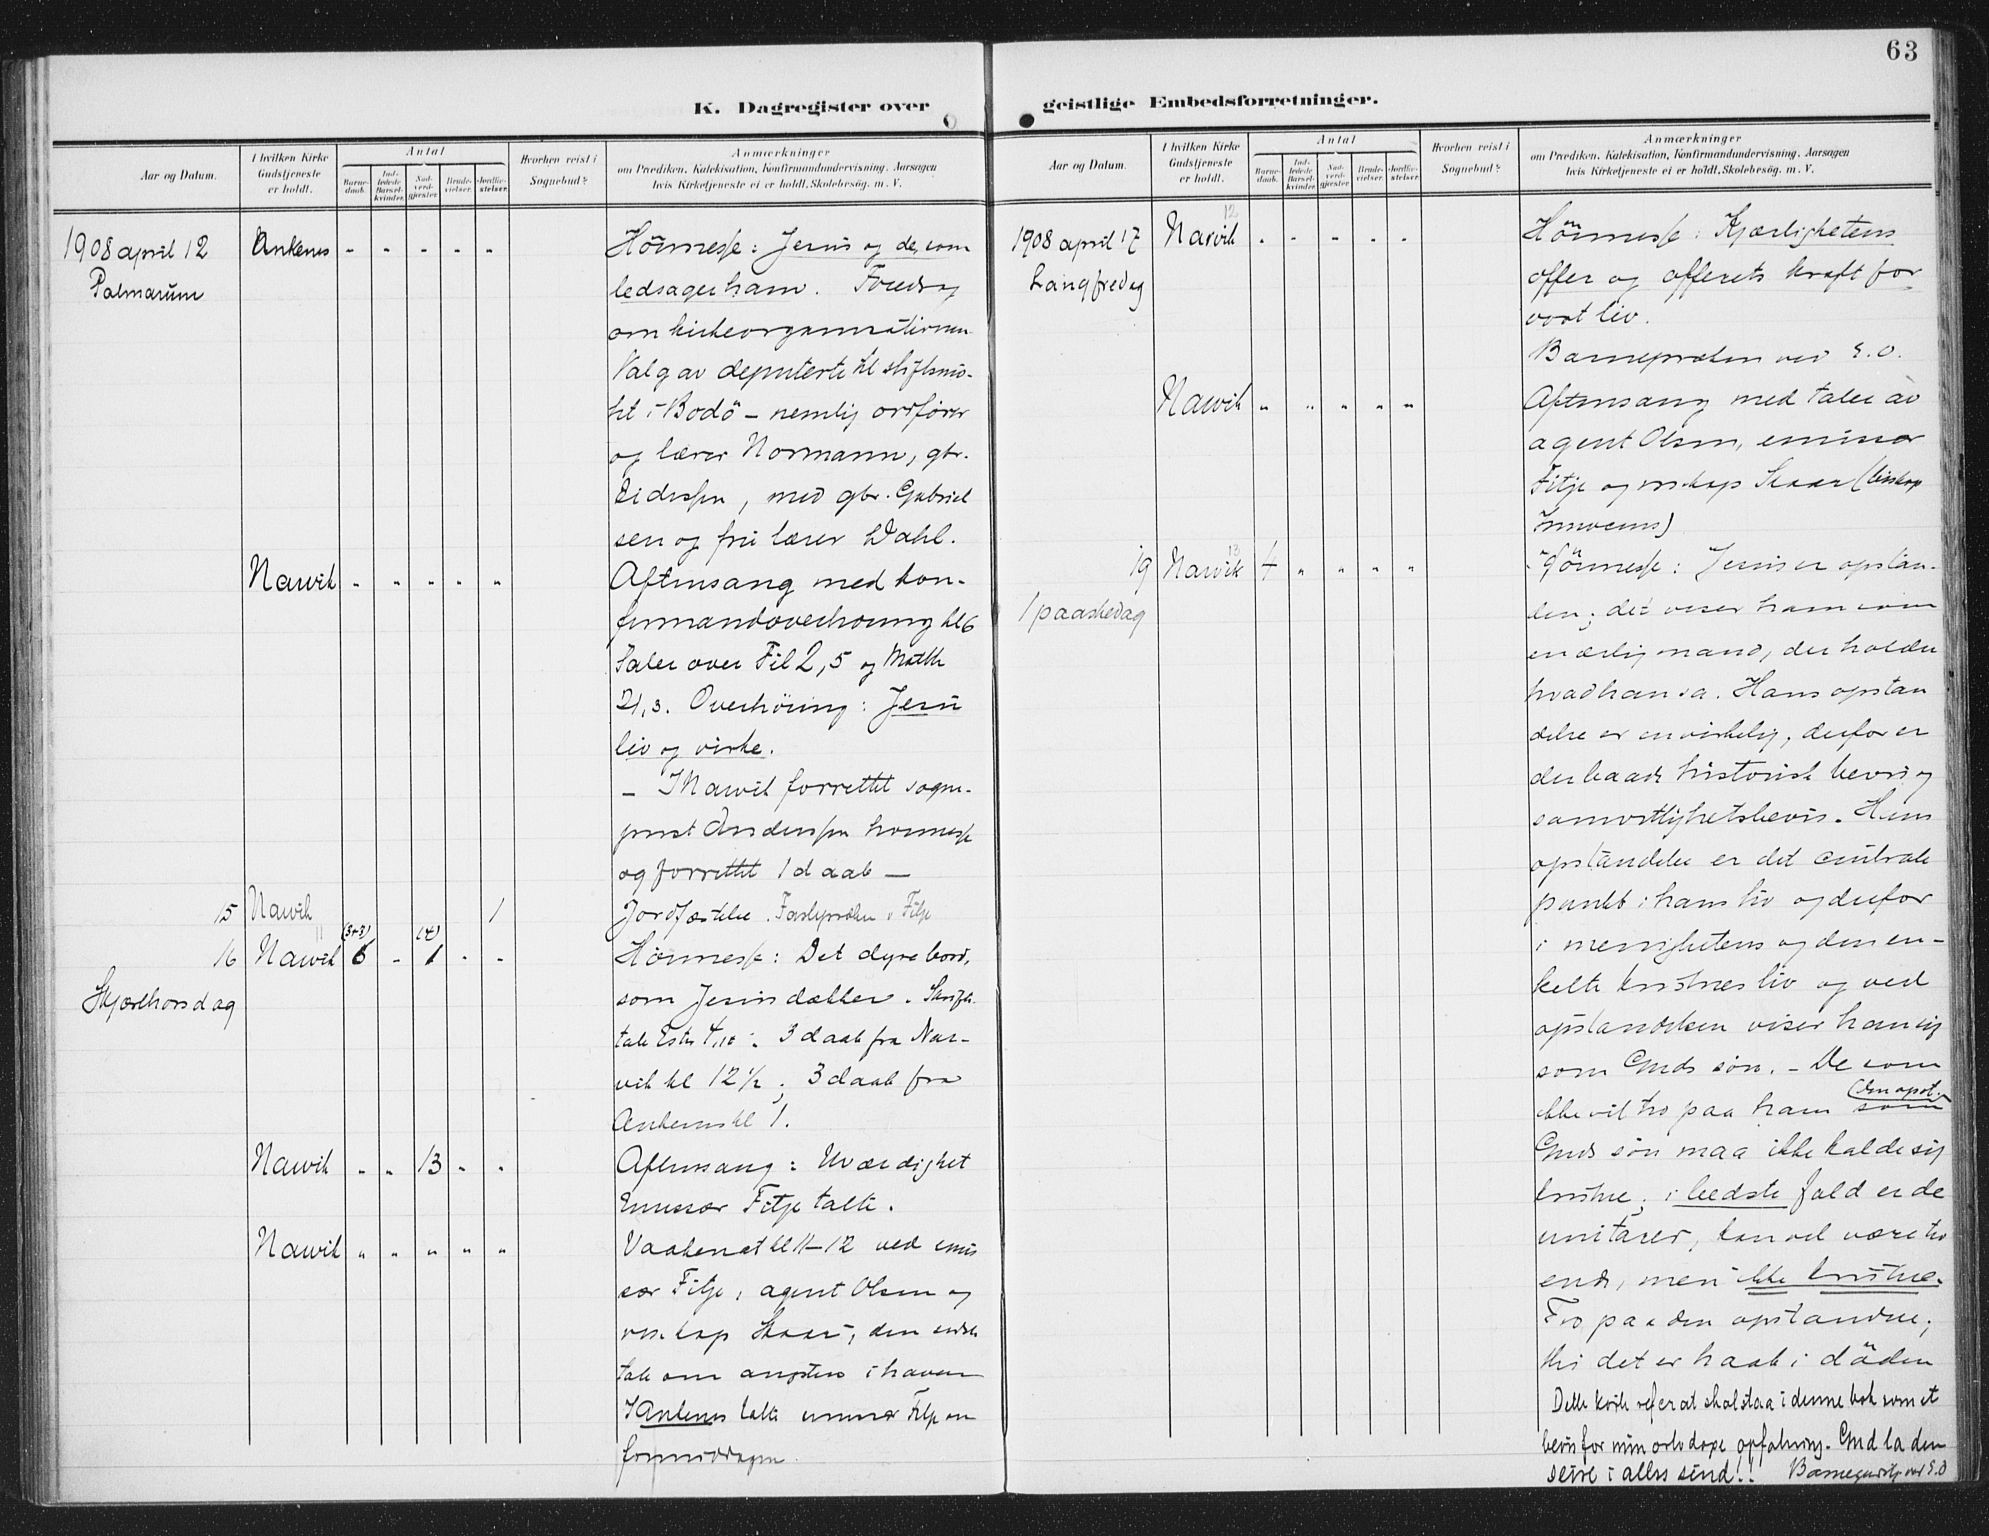 63
K. Dagregister over
geistlige Embedsforretninger.
Aar og Datum.
I hvilken Kirke
Gudstjeneste
er holdt.
Antal
Barne-
daab.
Ind-
ledede
Barsel-
kvinder.
Nad-
verd-
gjæster
Brude-
vielser.
Jordfæ-
stelser.
Hvorhen reist i
Sognebud?
Anmærkninger
om Prædiken, Katekisation, Konfirmandundervisning. Aarsagen
hvis Kirketjeneste ei er holdt. Skolebesög. m. V.
1908 april 12
Palmarum
Ankenes
Höimesse: Jesus og de, som
ledsager ham. Foredrag
om kirkeorganisationen
Valg av deputerte til stiftsmö-
tet i Bodö – nemlig ordförer
og lærer Normann, gbr.
med gbr. Gabriel
sen og fru lærer Dahl.
Narvik
Aftensang med kon-
firmandoverhöring kl 6
Taler over Fil 2,5 og Matth
21,3. Overhöring: Jesu
liv og virke.
– I Narvik forrettet sogne-
prest Anderssen höimesse
og forrettet 1 daab –
15 Narvik 1
Jordfæstelse. Fastepræken v Fitje
11
16 Narvik (3+3) 6 (4) 1
Skjærthorsdag
Höimesse: Det dyre bord,
som Jesus dækker. Skrifte-
tale Ester 4,10. 3 daab fra Nar-
vik kl 12 1/2, 3 daab fra
Ankenes kl 1.
Narvik 13
Aftensang: Uværdighet
Emissær Fitje talte.
Narvik
Vaakenat kl 11–12 ved emis
sær Fitje, agent Olsen og
Skaar, den sidste
tale om angsten i haven
I Ankenes talte emissær Fitje om
formiddagen.
Aar og Datum.
I hvilken Kirke
Gudstjeneste
er holdt.
Antal
Barne-
daab.
Ind-
ledede
Barsel-
kvinder.
Nad-
verd-
gjæster
Brude-
vielser.
Jordfæ-
stelser.
Hvorhen reist i
Sognebud?
Anmærkninger
om Prædiken, Katekisation, Konfirmandundervisning. Aarsagen
hvis Kirketjeneste ei er holdt. Skolebesög. m. V.
12
1908 april 17 Narvik
Langfredag
Höimesse: Kjærlighetens
offer og offerets kraft for
vort liv.
Barnepræken ved E.O.
Narvik
Aftensang med taler av
agent Olsen, emissær
Fitje og Skaar (biskop
13
19 Narvik 4
1 paaskedag
Höimesse: Jesus er opstan-
den; det viser ham som
en ærlig mand, der holder
hvad han sa. Hans opstan
delse er en virkelig, derfor er
der baade historisk bevis og
samvittighetsbevis. Hans
opstandelse er det centrale
punkt i hans liv og derfor
i menighetens og den en-
kelte kristnes liv og ved
opstandelsen viser han sig
som Guds sön. – De som
(den opst.
ikke vil tro paa ham som
Guds sön maa ikke kalde sig
kristne; i bedste fald er de
unitarer, kan vel være tro
ende, men ikke kristne.
Tro paa den opstandne;
thi det er haab i döden
Dette korte referat skal staa i denne bok som et
bevis for min ortodoxe opfatning. Gud la den
seire i alles sind!! Barnegudstj. ved E.O